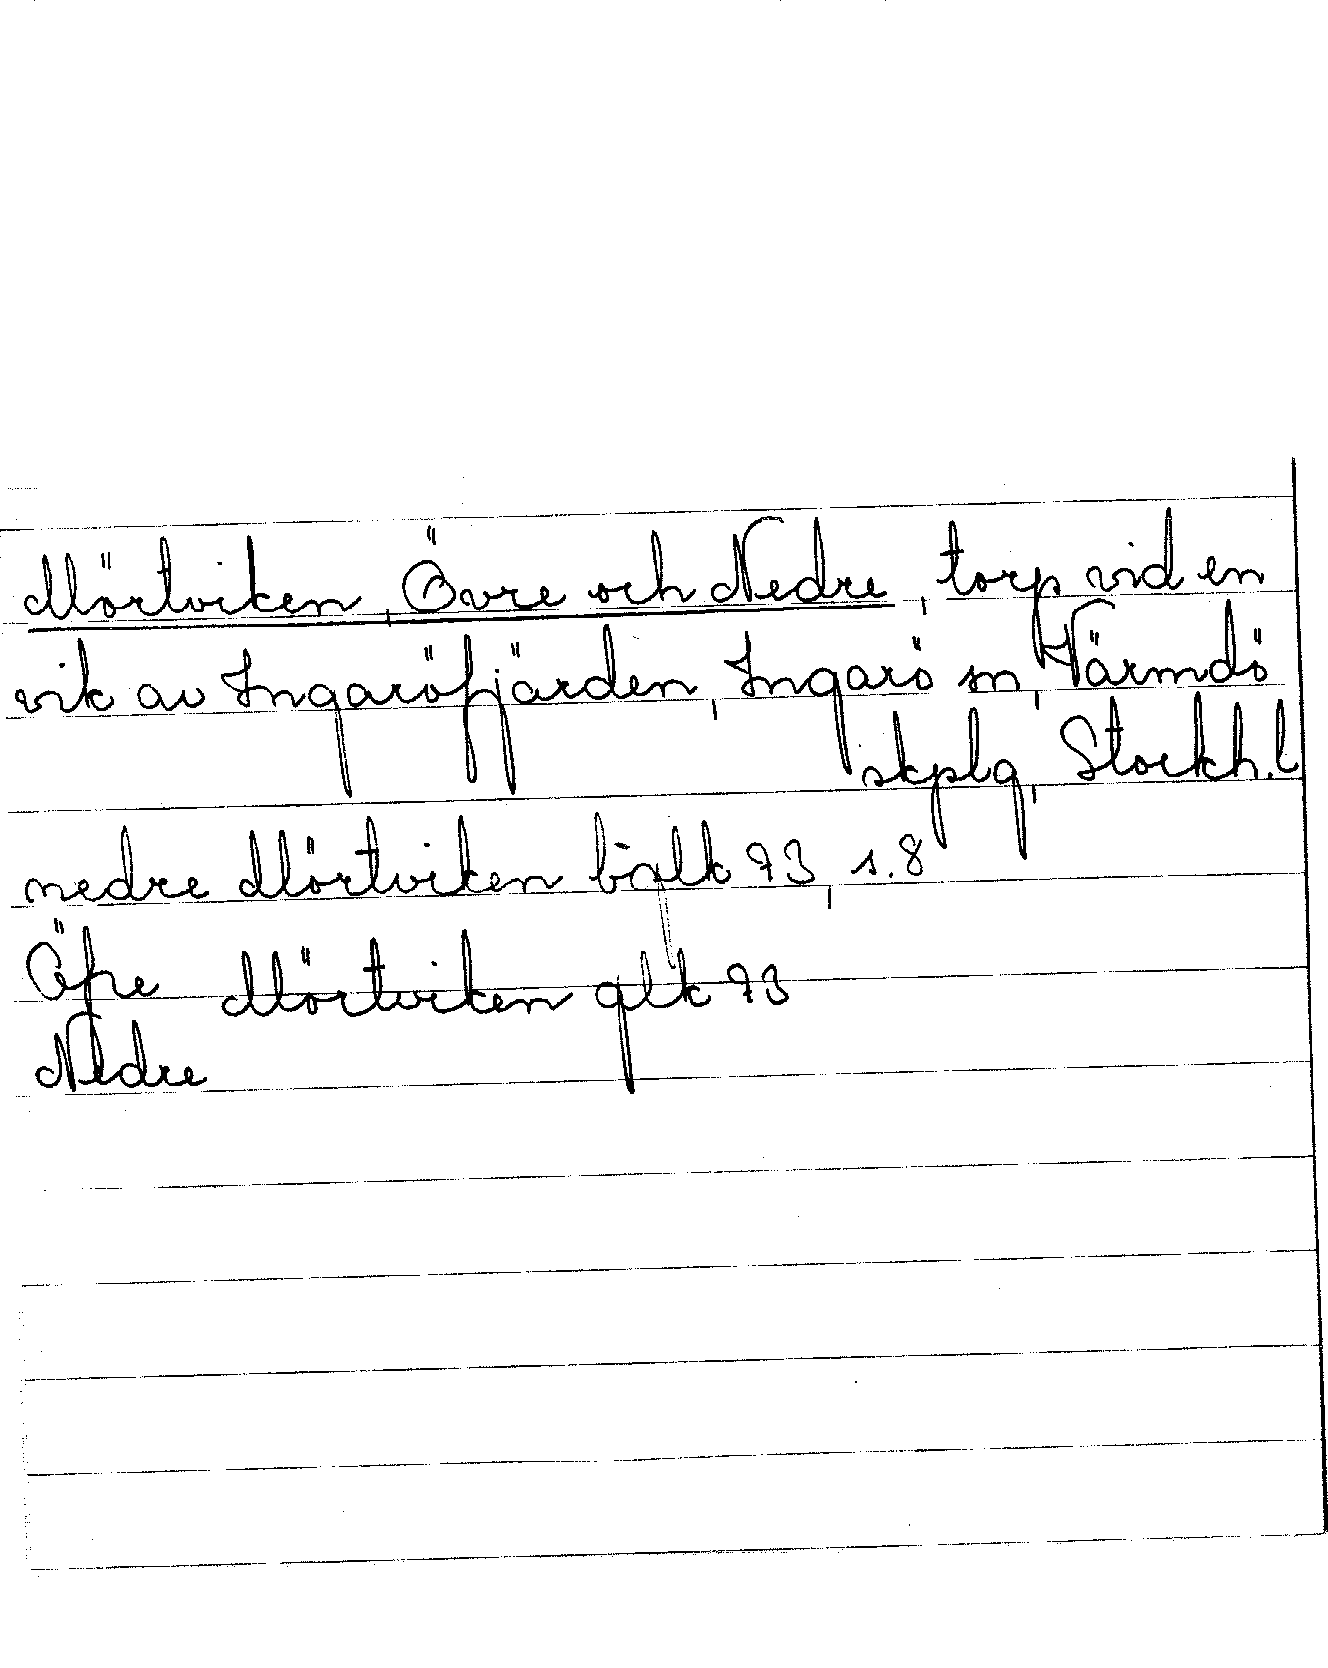 Mörtviken, Övre och Nedre, torp vid en
vik av Ingaröfjärden, Ingarö sn, Värmdö
skplg, Stockh.l
nedre Mörtviken 73, s.8
Öfre Mörtviken glk 73
Nedre